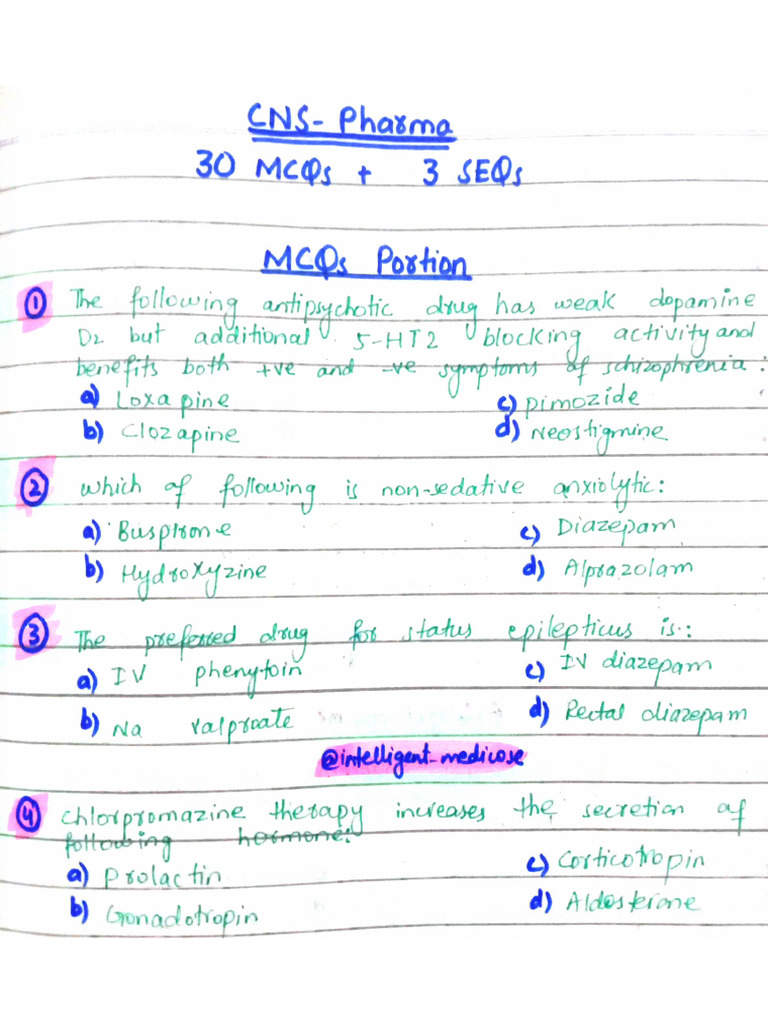 CNS- Pharma
30 MCQs + 3 SEQs
MCQs Portion
① The following antipsychotic drug has weak dopamine
D2 but additional 5-HT2 blocking activity and
benefits both +ve and -ve symptoms of schizophrenia:
a) Loxapine c) pimozide
b) Clozapine d) Neostigmine
② which of following is non-sedative anxiolytic:
a) Buspirone c) Diazepam
b) Hydroxyzine d) Alprazolam
③ The preferred drug for status epilepticus is:
a) IV phenytoin c) IV diazepam
b) Na valproate d) Rectal diazepam
@intelligent_medicose
④ chlorpromazine therapy increases the secretion of
following hormone:
a) prolactin c) Corticotropin
b) Gonadotropin d) Aldosterone